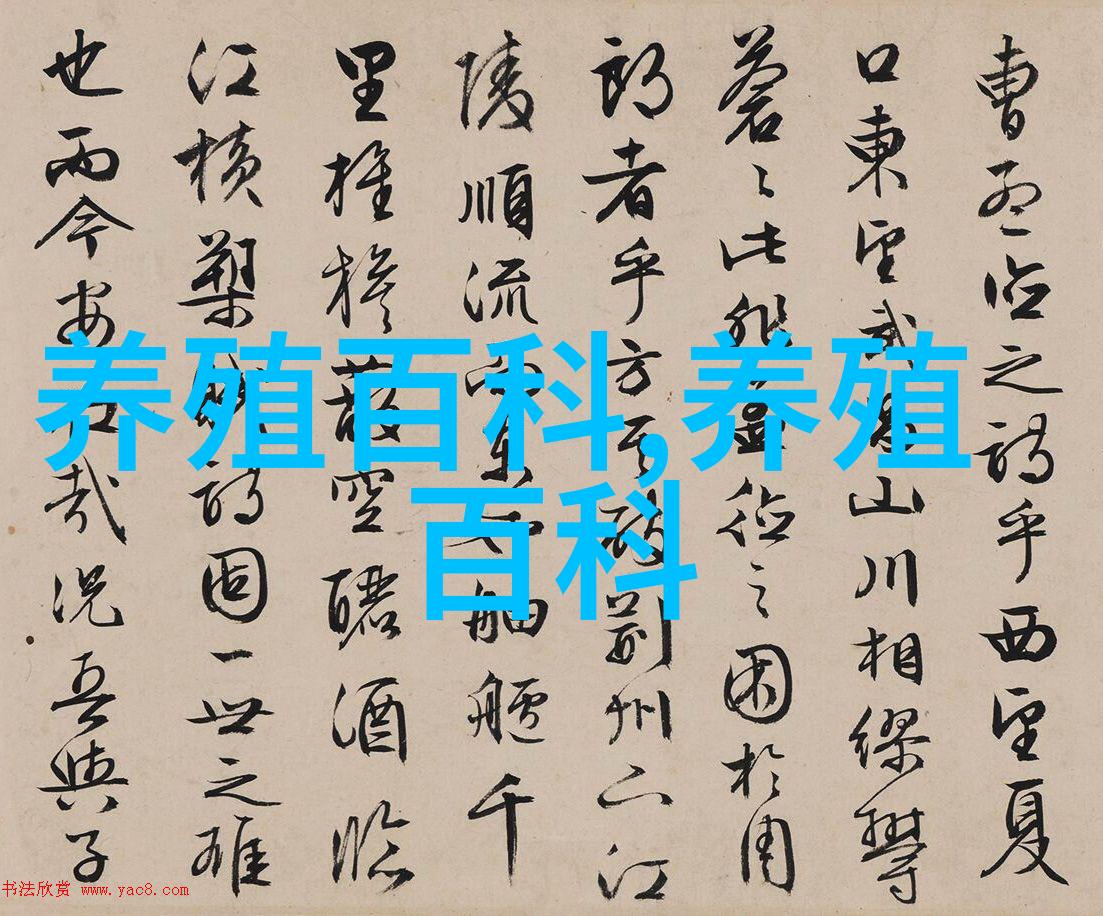 曹孟德之詩乎西望夏
口東望武昌山川相繆鬱
蒼〻此非孟德之困於周
郎者乎方其破荊州下江
陵順流而東也舳艫千
里旌旗蔽空釃酒臨
江橫槊賦詩固一世之雄
也而今安在哉況吾與子
养殖百科,养殖
百科
书法欣赏 www.yac8.com